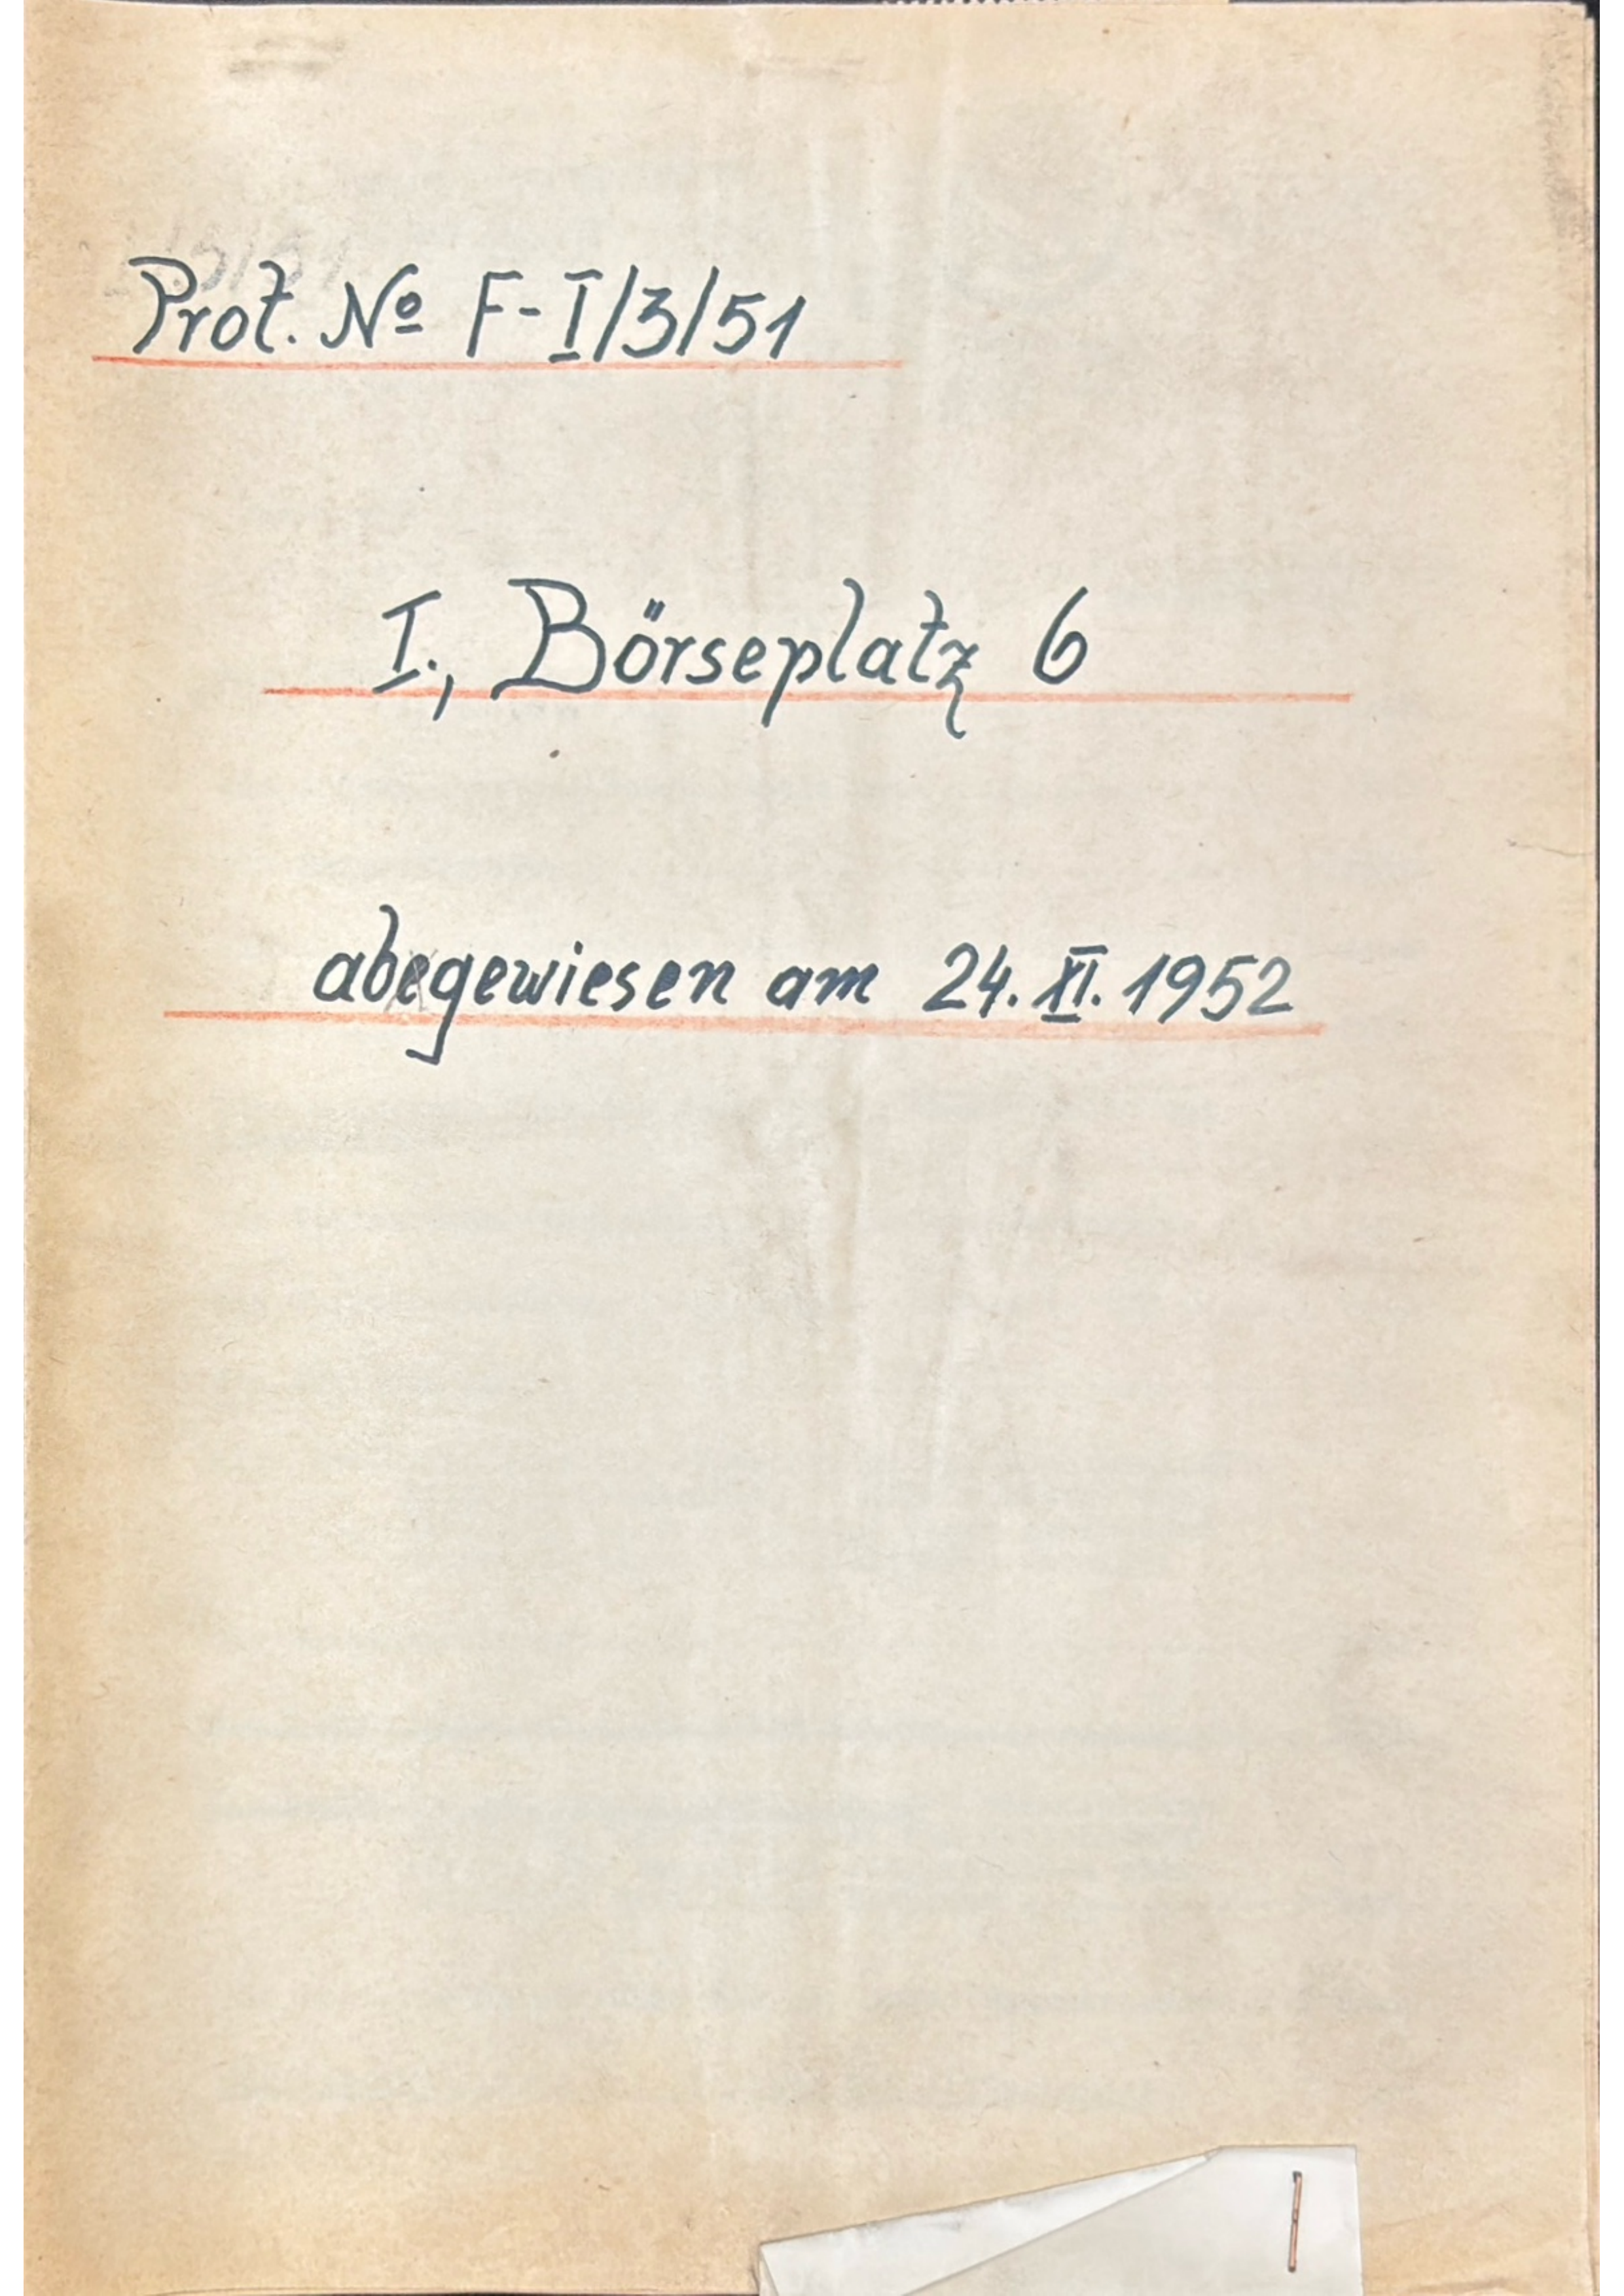 Prot. Nº F-I/3/51
I., Börseplatz 6
abgewiesen am 24. XI. 1952